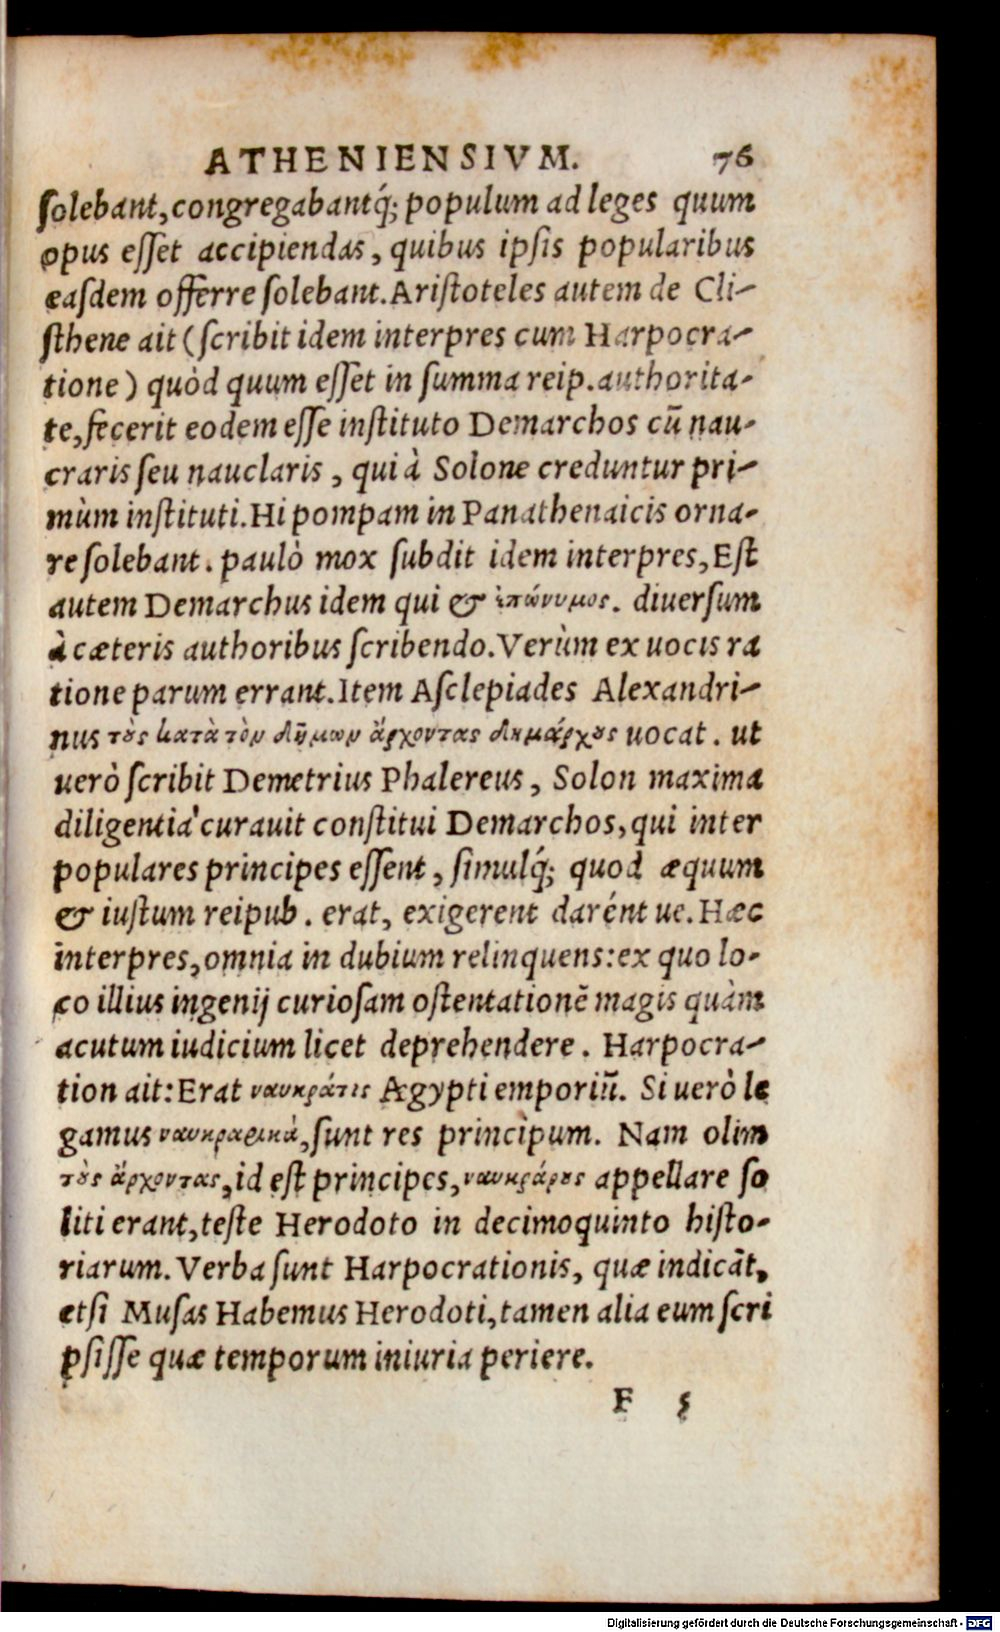 ATHENIENSIVM. 76
ſolebant, congregabantq́; populum ad leges quum
opus eſſet accipiendas, quibus ipſis popularibus
eaſdem offerre ſolebant. Ariſtoteles autem de Cli-
ſthene ait (ſcribit idem interpres cum Harpocra-
tione) quòd quum eſſet in ſumma reip. authorita-
te, fecerit eodem eſſe inſtituto Demarchos cū nau-
craris ſeu nauclaris, qui à Solone creduntur pri-
mùm inſtituti. Hi pompam in Panathenaicis orna-
re ſolebant. paulò mox ſubdit idem interpres, Eſt
autem Demarchus idem qui & ἐπώνυμος. diuerſum
à cæteris authoribus ſcribendo. Verùm ex uocis ra
tione parum errant. Item Aſclepiades Alexandri-
nus τȣ̀ς κατὰ τὸν δῆμον ἄρχοντας δημάρχȣς uocat. ut
uerò ſcribit Demetrius Phalereus, Solon maxima
diligentia curauit conſtitui Demarchos, qui inter
populares principes eſſent, ſimulq́; quod æquum
& iuſtum reipub. erat, exigerent daréntue. Hæc
interpres, omnia in dubium relinquens: ex quo lo-
co illius ingenij curioſam oſtentationē magis quàm
acutum iudicium licet deprehendere. Harpocra-
tion ait: Erat ναυκράτις Ægypti emporiū. Si uerò le
gamus ναυκραρικὰ, ſunt res principum. Nam olim
τȣ̀ς ἄρχοντας, id eſt principes, ναυκράρȣς appellare ſo
liti erant, teſte Herodoto in decimoquinto hiſto-
riarum. Verba ſunt Harpocrationis, quæ indicāt,
etſi Muſas Habemus Herodoti, tamen alia eum ſcri
pſiſſe quæ temporum iniuria periere.
F 5
Digitalisierung gefördert durch die Deutsche Forschungsgemeinschaft - DFG